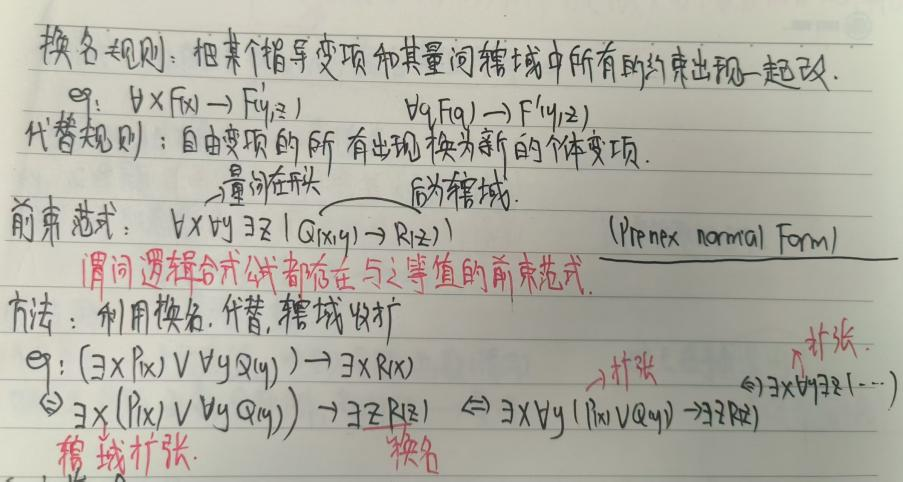 换名规则：把某个指导变项和其量词辖域中所有的约束出现一起改.
eg: ∀xF(x)→F'(y,z) ∀qF(q)→F'(y,z)
代替规则：自由变项的所有出现换为新的个体变项.
量词在开头 后为辖域.
前束范式： ∀x∀y∃z(Q(x,y)→R(z)) (Prenex normal Form)
谓词逻辑合式公式都存在与之等值的前束范式.
方法：利用换名.代替,辖域收扩
eg: (∃xP(x)∨∀yQ(y))→∃xR(x) 扩张 扩张.
⇔∃x(P(x)∨∀yQ(y))→∃zR(z) ⇔∃x∀y(P(x)∨Q(y))→∃zR(z) ⇔∃x∀y∃z(……)
辖域扩张. 换名